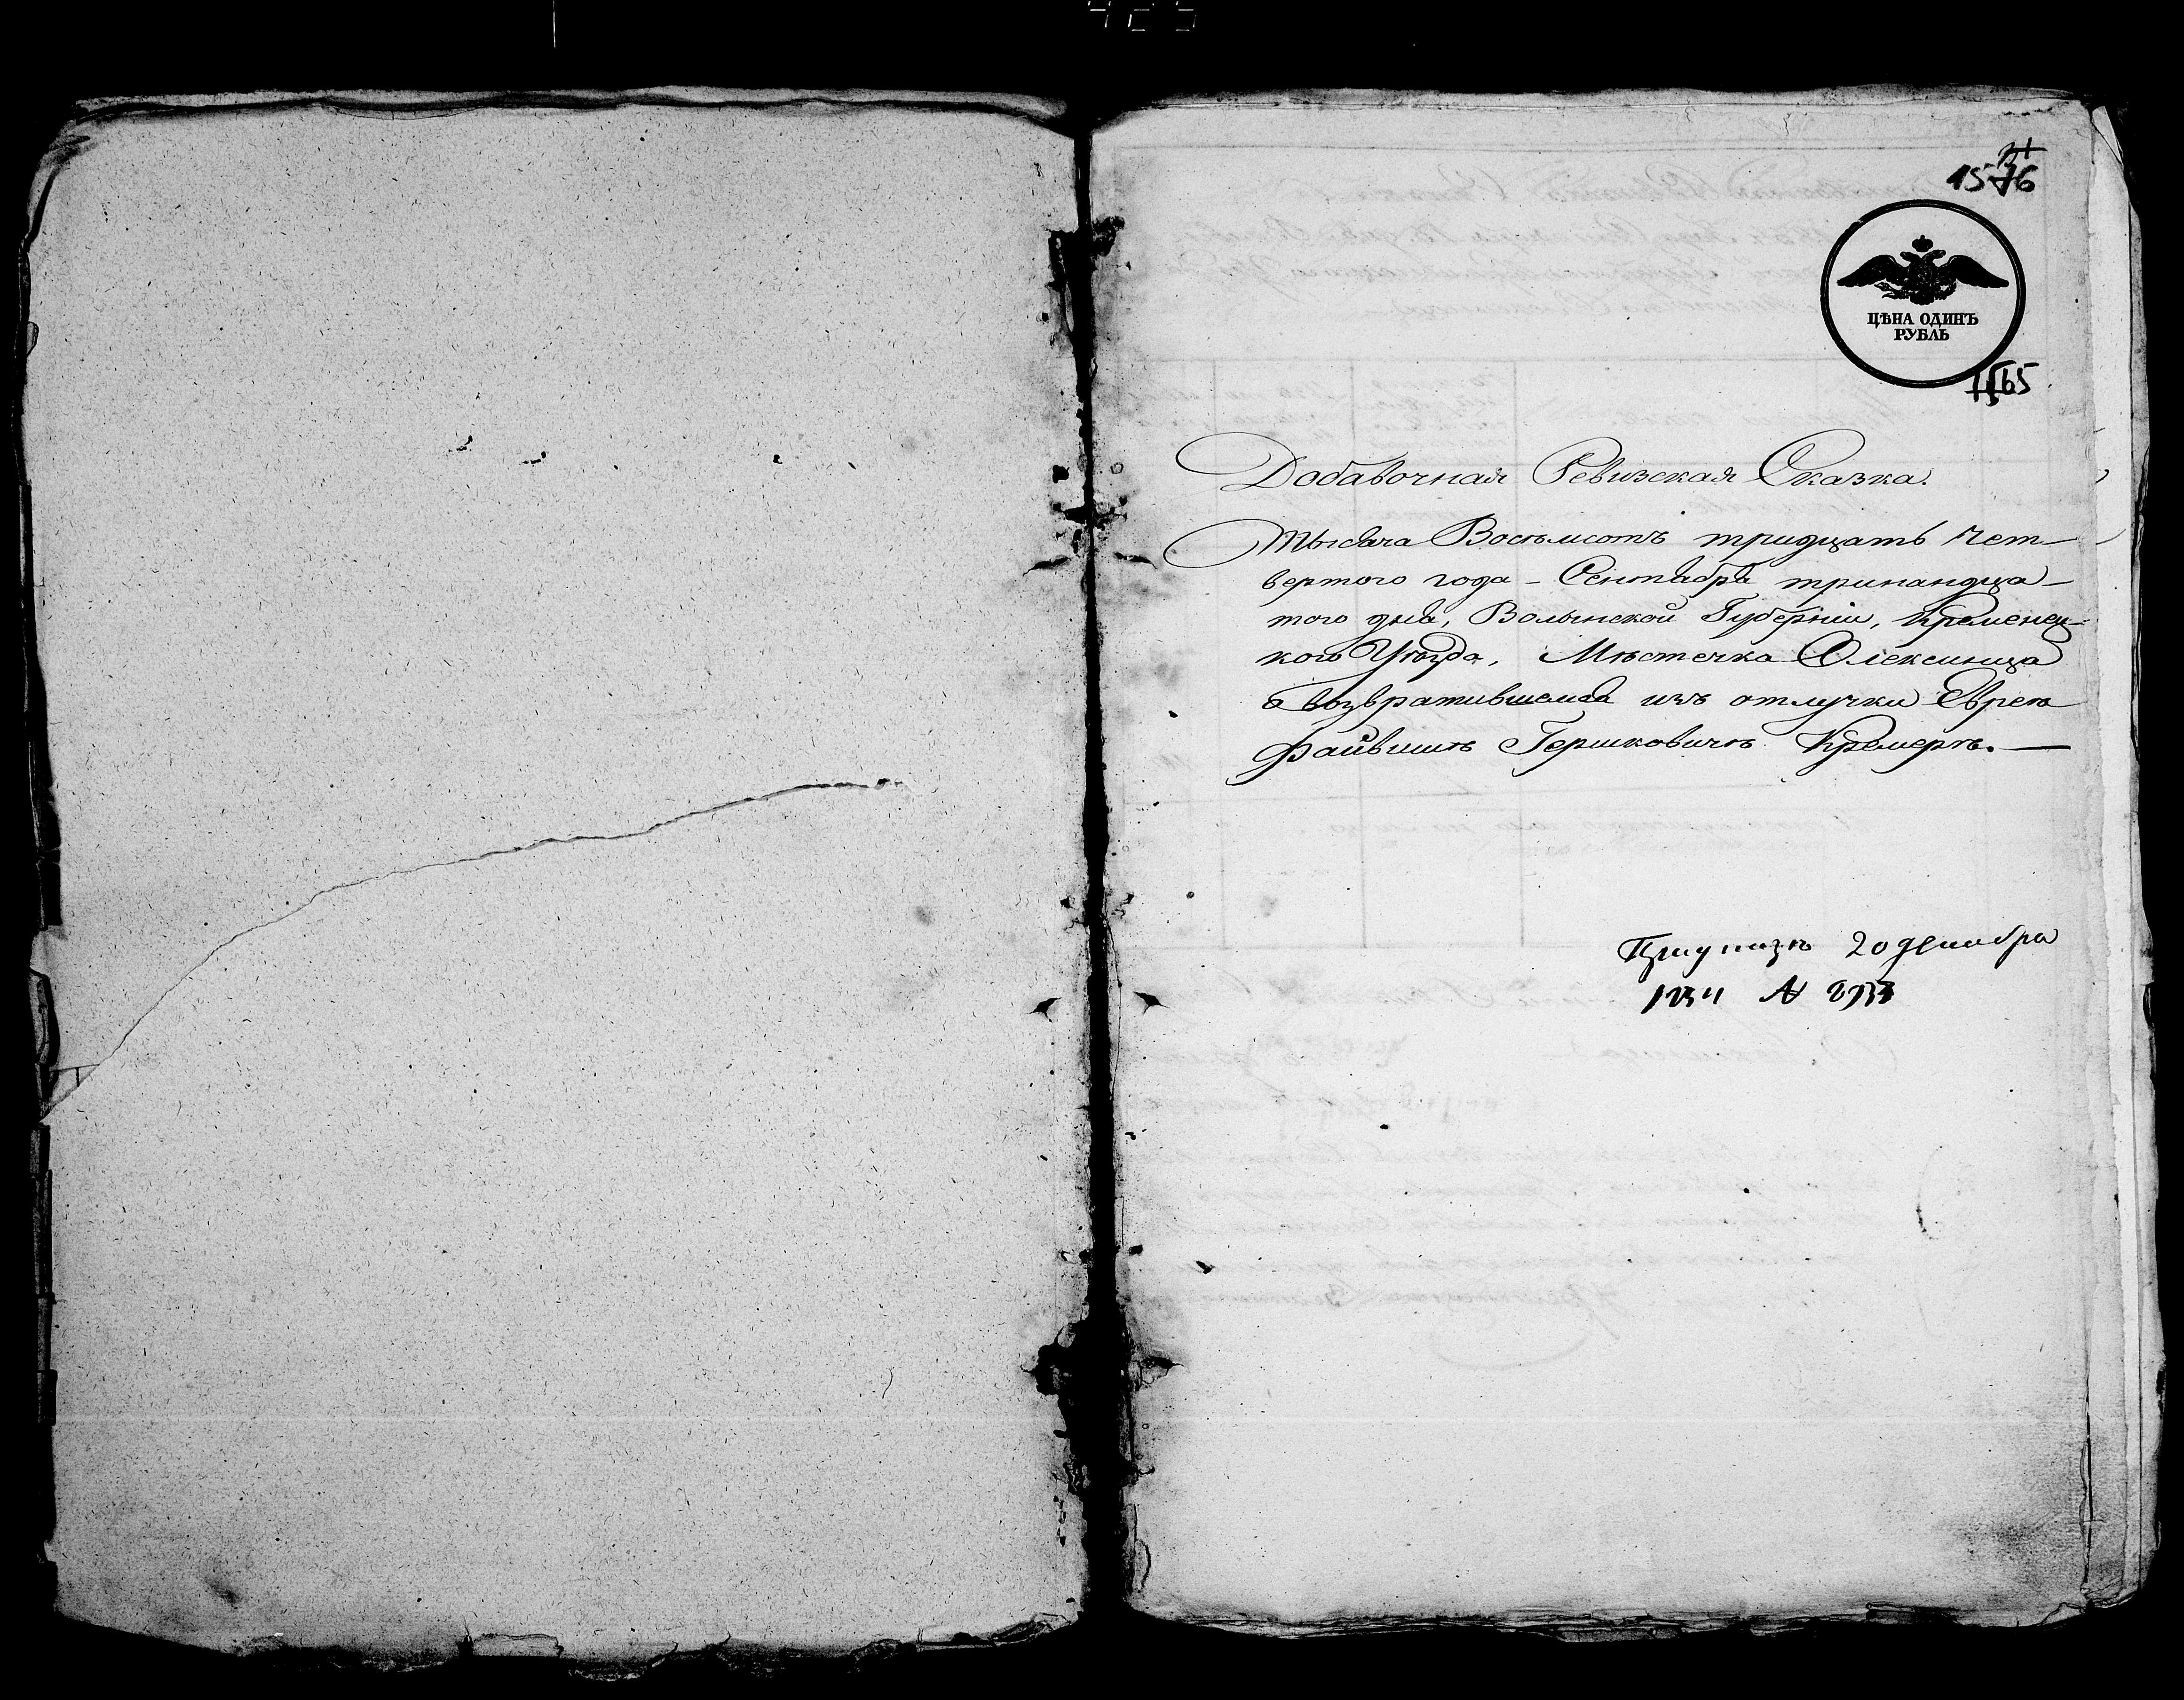 ЦѢНА ОДИНЪ
РУБЛЬ
Добавочная Ревизская Сказка.
Тысяча Восьмсотъ тридцать чет-
вертого года - Сентября тринандца-
того дня, Волынской Губерніи, Кременец-
кого Уѣзда, Мѣстечка Олексинца
о возвратившемся изъ отлучки Еврею
Файвишѣ Гершковичѣ Кремерѣ. —
20 декабря
1834 №